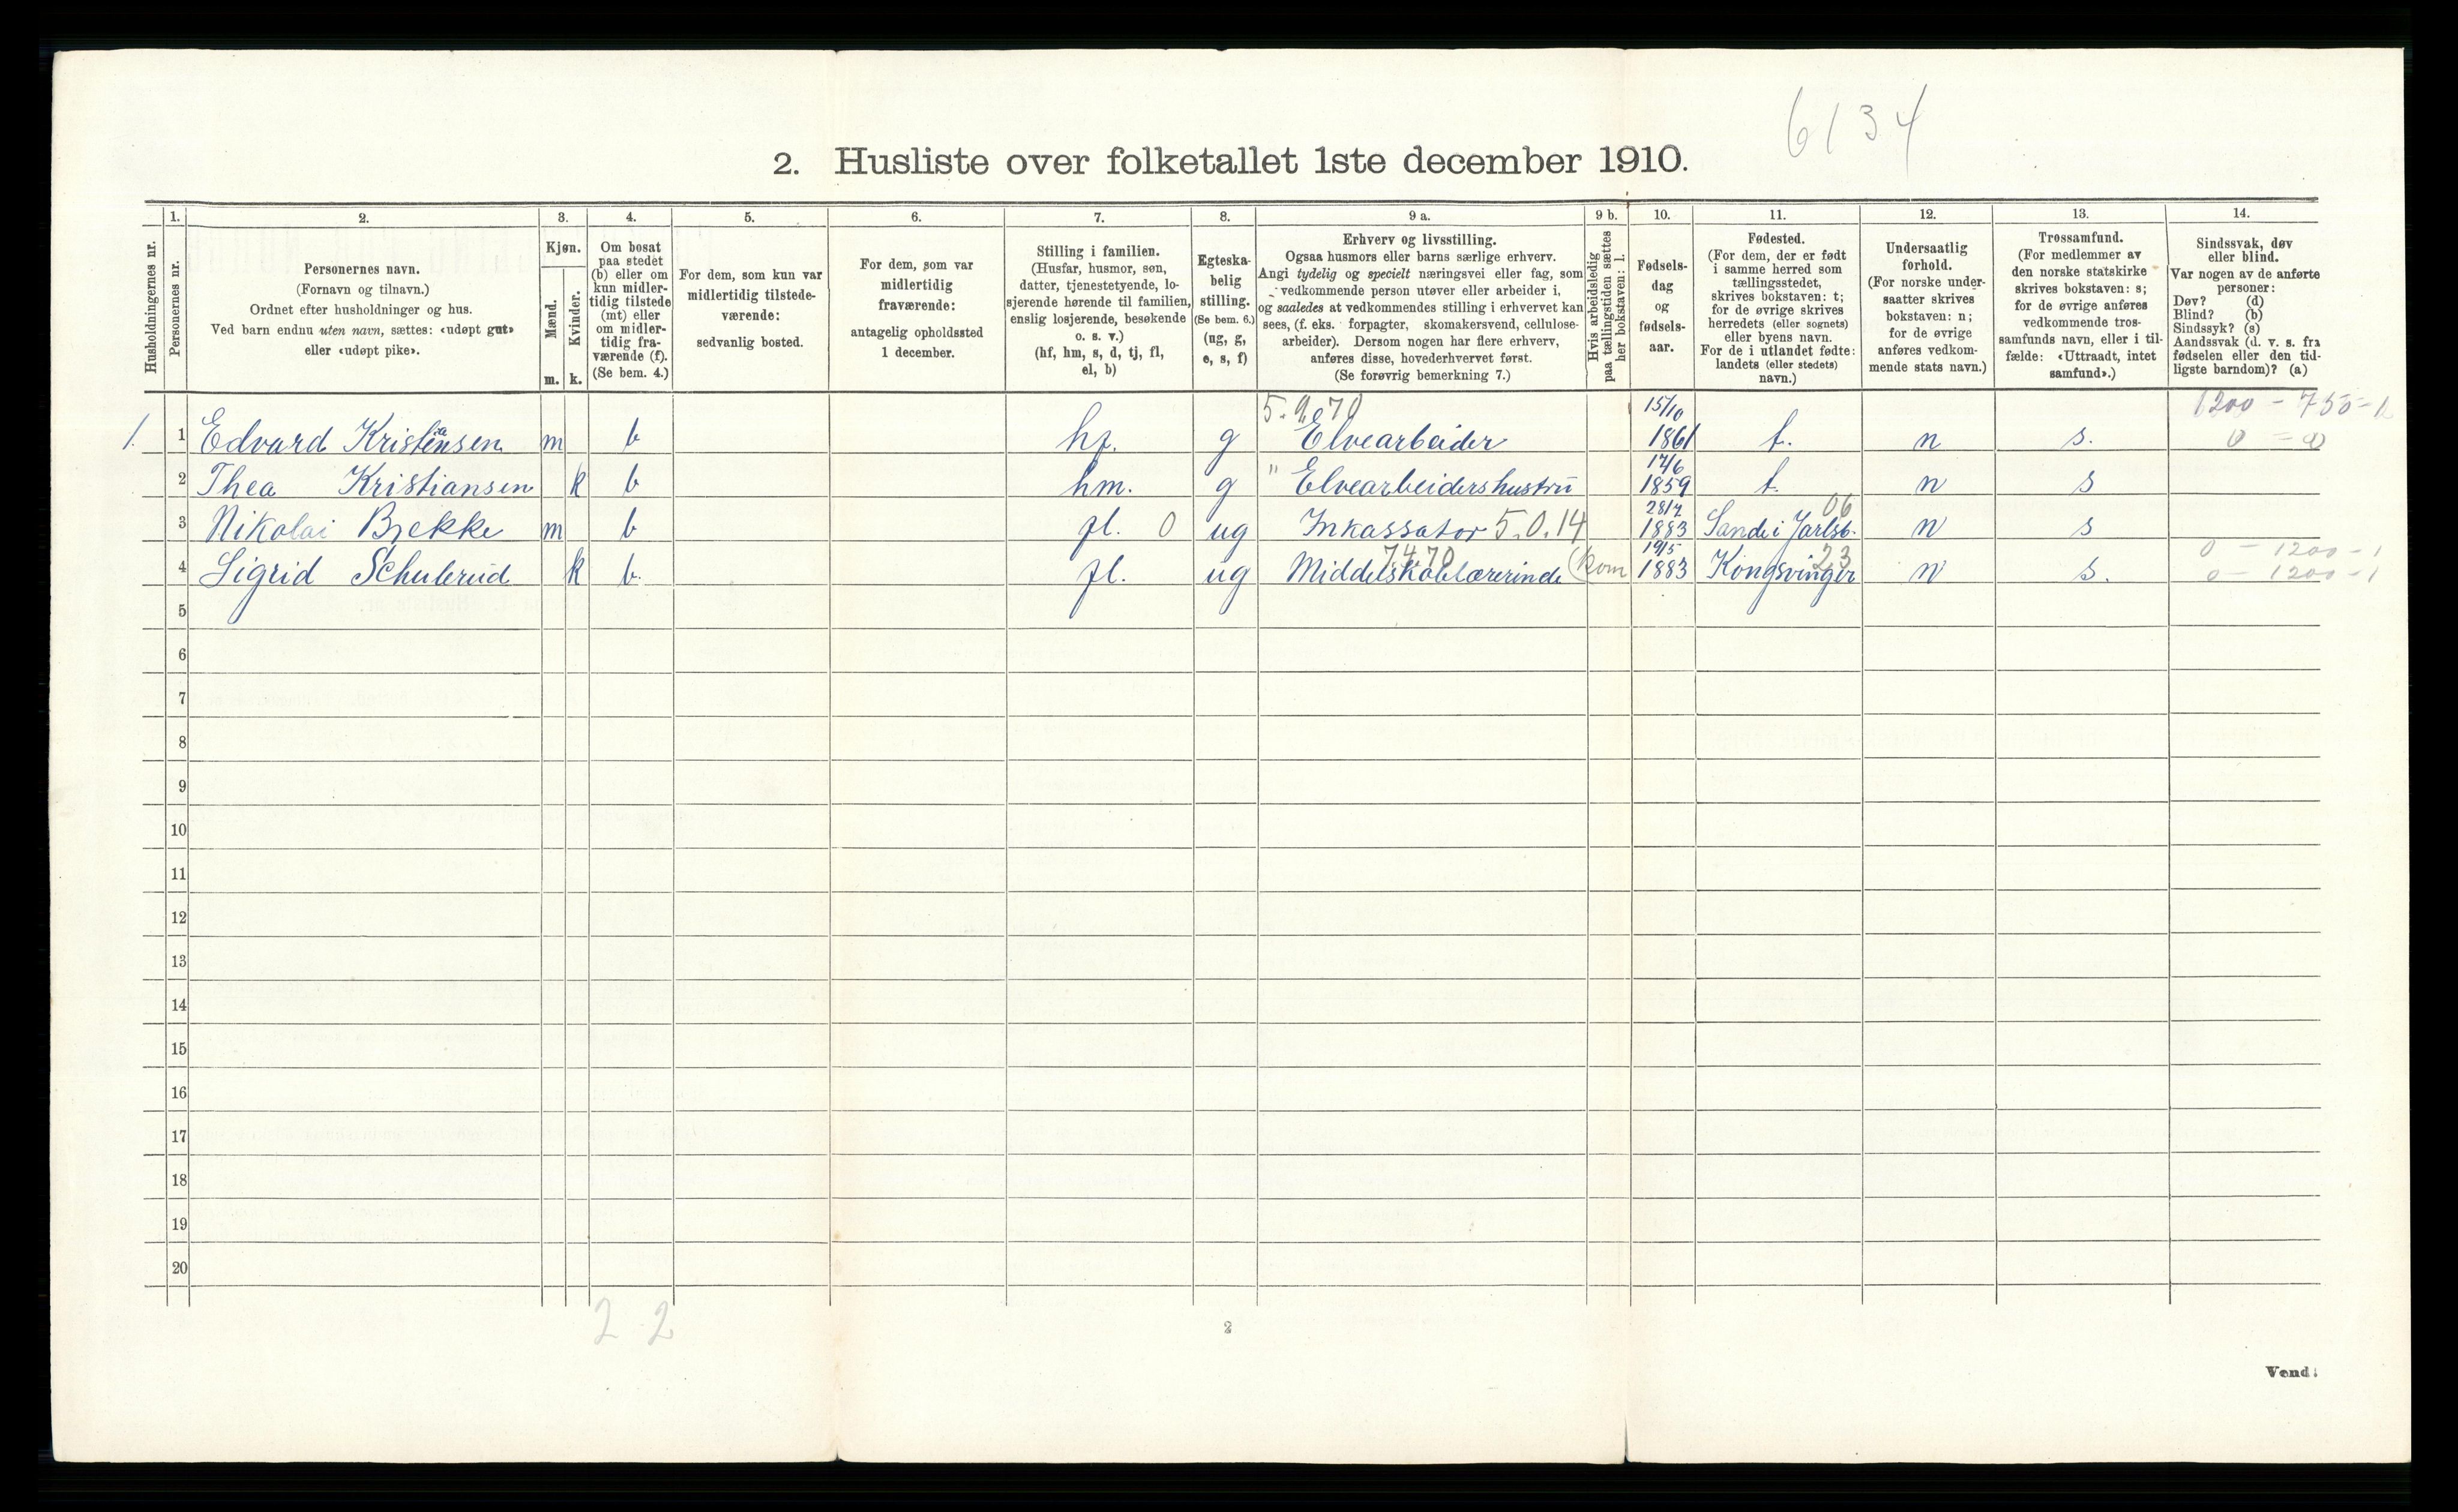 6134
2. Husliste over folketallet 1ste december 1910.
Husholdningernes nr.
1.
Personernes nr.
2.
Personernes navn.
(Fornavn og tilnavn.)
Ordnet efter husholdninger og hus.
Ved barn endnu uten navn, sættes: «udøpt gut»
eller «udøpt pike».
3.
Kjøn.
Mænd.
m.
Kvinder.
k.
4.
Om bosat
paa stedet
(b) eller om
kun midler-
tidig tilstede
(mt) eller
om midler-
tidig fra-
værende (f).
(Se bem. 4.)
5.
For dem, som kun var
midlertidig tilstede-
værende:
sedvanlig bosted.
6.
For dem, som var
midlertidig
fraværende:
antagelig opholdssted
1 december.
7.
Stilling i familien.
(Husfar, husmor, søn,
datter, tjenestetyende, lo-
sjerende hørende til familien,
enslig losjerende, besøkende
o. s. v.)
(hf, hm, s, d, tj, fl,
el, b)
8.
Egteska-
belig
stilling.
(Se bem. 6.)
(ug, g,
e, s, f)
9 a.
Erhverv og livsstilling.
Ogsaa husmors eller barns særlige erhverv.
Angi tydelig og specielt næringsvei eller fag, som
vedkommende person utøver eller arbeider i,
og saaledes at vedkommendes stilling i erhvervet kan
sees, (f. eks. forpagter, skomakersvend, cellulose-
arbeider). Dersom nogen har flere erhverv,
anføres disse, hovederhvervet først.
(Se forøvrig bemerkning 7.)
9 b.
Hvis arbeidsledig
paa tællingstiden sættes
her bokstaven: l.
10.
Fødsels-
dag
og
fødsels-
aar.
11.
Fødested.
(For dem, der er født
i samme herred som
tællingsstedet,
skrives bokstaven: t;
for de øvrige skrives
herredets (eller sognets)
eller byens navn.
For de i utlandet fødte:
landets (eller stedets)
navn.)
12.
Undersaatlig
forhold.
(For norske under-
saatter skrives
bokstaven: n;
for de øvrige
anføres vedkom-
mende stats navn.)
13.
Trossamfund.
(For medlemmer av
den norske statskirke
skrives bokstaven: s;
for de øvrige anføres
vedkommende tros-
samfunds navn, eller i til-
fælde: «Uttraadt, intet
samfund».)
14.
Sindssvak, døv
eller blind.
Var nogen av de anførte
personer:
Døv? (d)
Blind? (b)
Sindssyk? (s)
Aandssvak (d. v. s. fra
fødselen eller den tid-
ligste barndom)? (a)
15/10 1200 - 750 - 1
1. 1 Edvard Kristensen m b hf. g Elvearbeider 1861 t. n s.
17/6
2 Thea Kristiansen k b hm. g " Elvearbeidershustru 1859 t. n s
06
3 Nikolai Brekke m b fl. 0 ug Inkassator 5.0.14 1883 Sande i Jarlsb. n s
7.4.70 19/5 23 0 - 1200 - 1
4 Sigrid Schulerud k b. fl. ug Middelskolelærerinde (kom 1883 Kongsvinger n s. 0 - 1200 - 1
5
6
7
8
9
10
11
12
13
14
15
16
17
18
19
20
2 2
2
Vend!